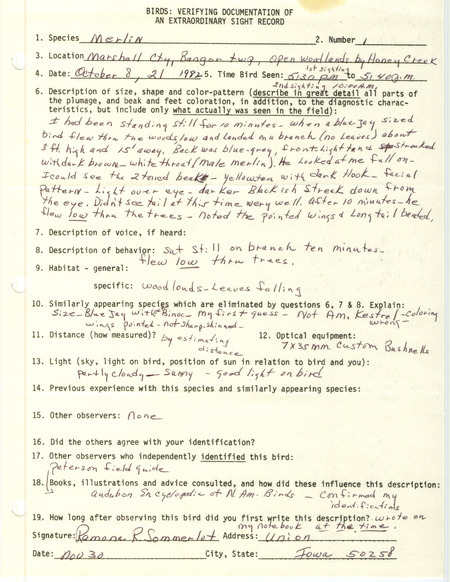 BIRDS: VERIFYING DOCUMENTATION OF
AN EXTRAORDINARY SIGHT RECORD
1. Species Merlin 2. Number 1
3. Location Marshall Cty, Bangor twp, open woodlands by Honey Creek
1st sighting
4. Date: October 8, 21 1982 5. Time Bird Seen: 5:30 pm to 5:40 p.m.
2nd sighting 10:00 A.M.
6. Description of size, shape and color-pattern (describe in great detail all parts of
the plumage, and beak and feet coloration, in addition, to the diagnostic charac-
teristics, but include only what actually was seen in the field):
I had been standing still for 10 minutes - when a blue jay sized
bird flew thru the woods low and landed on a branch (no leaves) about
3 ft high and 15' away. Back was blue-grey, front light tan & streaked
with dark brown - white throat (male merlin). He looked at me full on -
I could see the 2 toned beak - yellow ten with dark Hook - facial
Pattern - Light over eye - darker Blackish Streak down from
the eye. Didn't see tail at this time very well. After 10 minutes - he
flew low thru the trees - noted the pointed wings & Long tail banded.
7. Description of voice, if heard:
8. Description of behavior: Sat Still on branch ten minutes -
flew low thru trees.
9. Habitat - general:
specific: woodlands - Leaves falling
10. Similarly appearing species which are eliminated by questions 6, 7 & 8. Explain:
Size - Blue Jay with Binoc - my first guess - Not Am. Kestrel - coloring
wrong -
wings pointed - not sharp-shinned -
11. Distance (how measured)? by estimating
distance
12. Optical equipment:
7x35mm Custom Bushnells
13. Light (sky, light on bird, position of sun in relation to bird and you):
partly cloudy - Sunny - good light on bird
14. Previous experience with this species and similarly appearing species:
15. Other observers: None
16. Did the others agree with your identification?
17. Other observers who independently identified this bird:
Peterson field guide
18. Books, illustrations and advice consulted, and how did these influence this description:
Audubon Encyclopedia of N. Am. Birds - Confirmed my
identifications
19. How long after observing this bird did you first write this description? wrote on
my notebook at the time.
Signature: Ramona R. Sommerlot Address: Union
Date: Nov 30 City, State: Iowa 50258